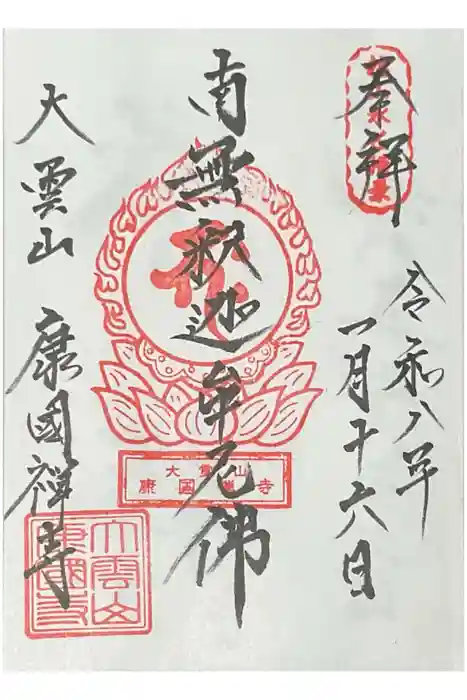 奉拝
令和八年
一月十六日
南無釈迦牟尼佛
大雲山
康國禅寺
大雲山
康国禅寺
大雲山
康國寺